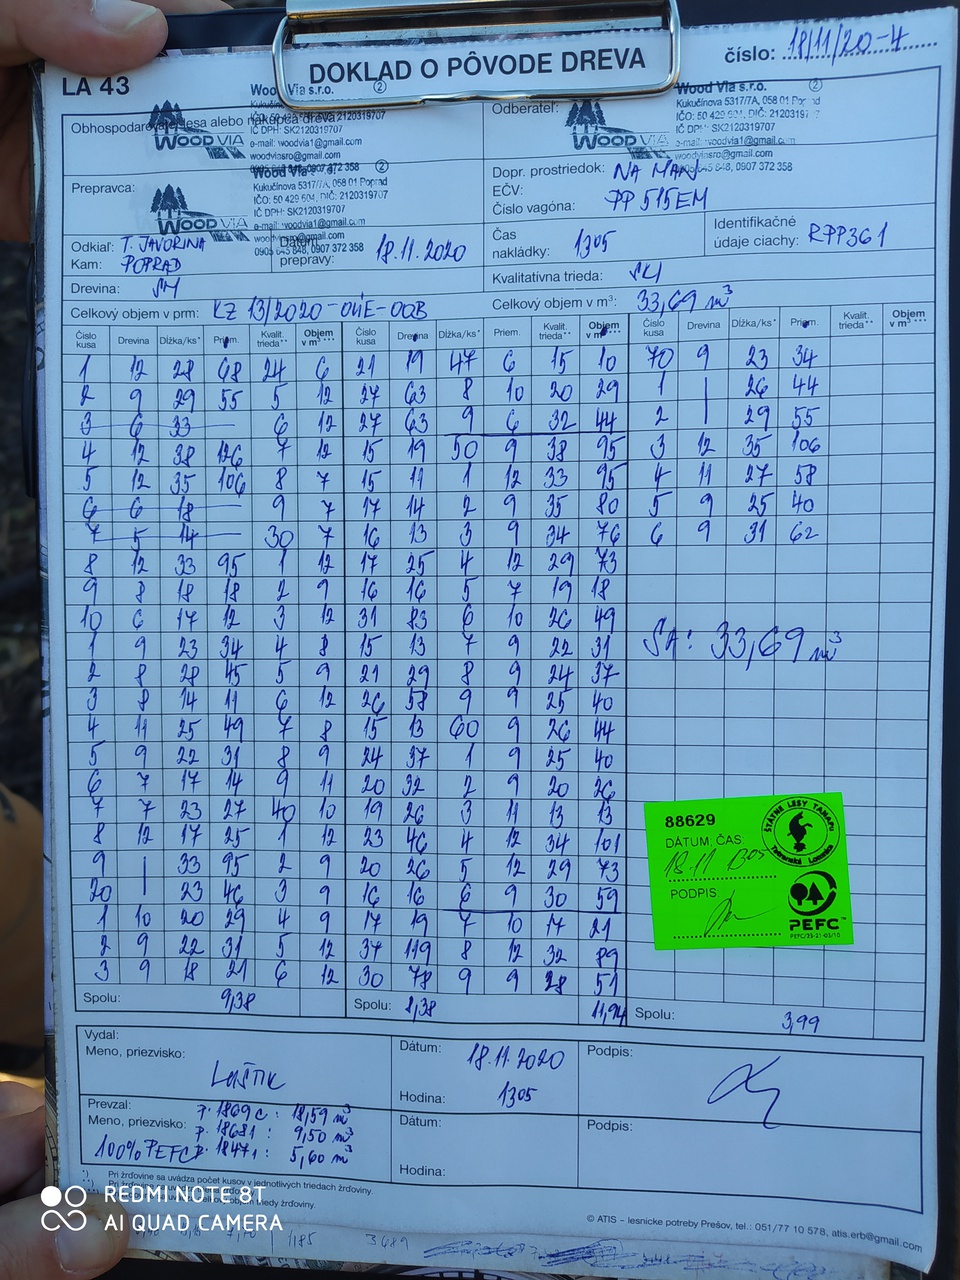 LA 43
DOKLAD O PÔVODE DREVA
číslo: 18/11/20-4
Obhospodarovateľ lesa alebo nákupca dreva
Wood Via s.r.o. ②
Kukučínova 5317/7A, 058 01 Poprad
IČO: 50 429 604, DIČ: 2120319707
IČ DPH: SK2120319707
e-mail: woodvia1@gmail.com
woodviasro@gmail.com
0905 645 848, 0907 372 358
WOOD VIA
Odberateľ:
Wood Via s.r.o. ②
Kukučínova 5317/7A, 058 01 Poprad
IČO: 50 429 604, DIČ: 2120319707
IČ DPH: SK2120319707
e-mail: woodvia1@gmail.com
woodviasro@gmail.com
0905 645 848, 0907 372 358
WOOD VIA
Prepravca:
Wood Via s.r.o. ②
Kukučínova 5317/7A, 058 01 Poprad
IČO: 50 429 604, DIČ: 2120319707
IČ DPH: SK2120319707
e-mail: woodvia1@gmail.com
woodviasro@gmail.com
0905 645 848, 0907 372 358
WOOD VIA
Dopr. prostriedok: NA MAN
EČV: PP 515EM
Číslo vagóna:
Odkiaľ: T. JAVORINA
Kam: POPRAD
Dátum prepravy: 18.11.2020
Čas nakládky: 1305
Identifikačné údaje ciachy: RPP361
Drevina: SM
Kvalitatívna trieda: SM
Celkový objem v prm: KZ 13/2020-OUE-OOB
Celkový objem v m³: 33,69 m³
Číslo kusa Drevina Dĺžka/ks* Priem. Kvalit. trieda** Objem v m³ *** Číslo kusa Drevina Dĺžka/ks* Priem. Kvalit. trieda** Objem v m³ *** Číslo kusa Drevina Dĺžka/ks* Priem. Kvalit. trieda** Objem v m³ ***
1 12 28 68 24 6 21 19 47 6 15 10 70 9 23 34
2 9 29 55 5 12 27 63 8 10 20 29 1 | 26 44
3 6 33 — 6 12 27 63 9 6 32 44 2 | 29 55
4 12 38 126 7 12 15 19 50 9 38 95 3 12 35 106
5 12 35 106 8 7 15 11 1 12 33 95 4 11 27 58
6 6 18 — 9 7 17 14 2 9 35 80 5 9 25 40
7 5 14 — 30 7 16 13 3 9 34 76 6 9 31 62
8 12 33 95 1 12 17 25 4 12 29 73
9 8 18 18 2 9 16 16 5 7 19 18
10 6 17 12 3 12 31 83 6 10 26 49
1 9 23 34 4 8 15 13 7 9 22 31
2 8 28 45 5 9 21 29 8 9 24 37
3 8 14 11 6 12 26 58 9 9 25 40
4 11 25 49 7 8 15 13 60 9 26 44
5 9 22 31 8 9 24 37 1 9 25 40
6 7 17 14 9 11 20 32 2 9 20 26
7 7 23 27 40 10 19 26 3 11 13 13
8 12 17 25 1 12 23 46 4 12 34 101
9 | 33 95 2 9 20 26 5 12 29 73
20 | 23 46 3 9 16 16 6 9 30 59
1 10 20 29 4 9 17 19 7 10 17 21
2 9 22 31 5 12 37 119 8 12 32 89
3 9 18 21 6 12 30 78 9 9 28 51
33,69 m³
88629
DÁTUM, ČAS:
18.11 1305
PODPIS:
ŠTÁTNE LESY TANAPU
Tatranská Lomnica
PEFC™
PEFC/23-21-03/10
Spolu: 9,38
Spolu: 8,38 11,94
Spolu: 3,99
Vydal:
Meno, priezvisko:
LAŠTIK
Dátum: 18.11.2020
Hodina: 1305
Podpis:
Prevzal:
Meno, priezvisko:
P. 1869C : 18,59 m³
P. 18681 : 9,50 m³
100% PEFC P. 18471 : 5,60 m³
Dátum:
Hodina:
Podpis:
*) Pri žrďovine sa uvádza počet kusov v jednotlivých triedach žrďoviny.
© ATIS – lesnícke potreby Prešov, tel.: 051/77 10 578, atis.erb@gmail.com
REDMI NOTE 8T
AI QUAD CAMERA